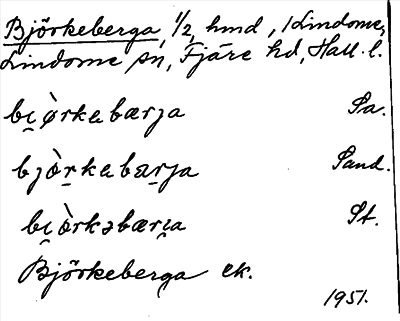 Björkeberga, 1/2, hmd, i Lindome,
Lindome sn, Fjäre hd, Hall. l.
bi̯ò̤rkabærja Sa.
bjò̤rkabærja Sand.
bi̯ò̤rkəbæri̯a St.
Björkeberga ek.
1951.